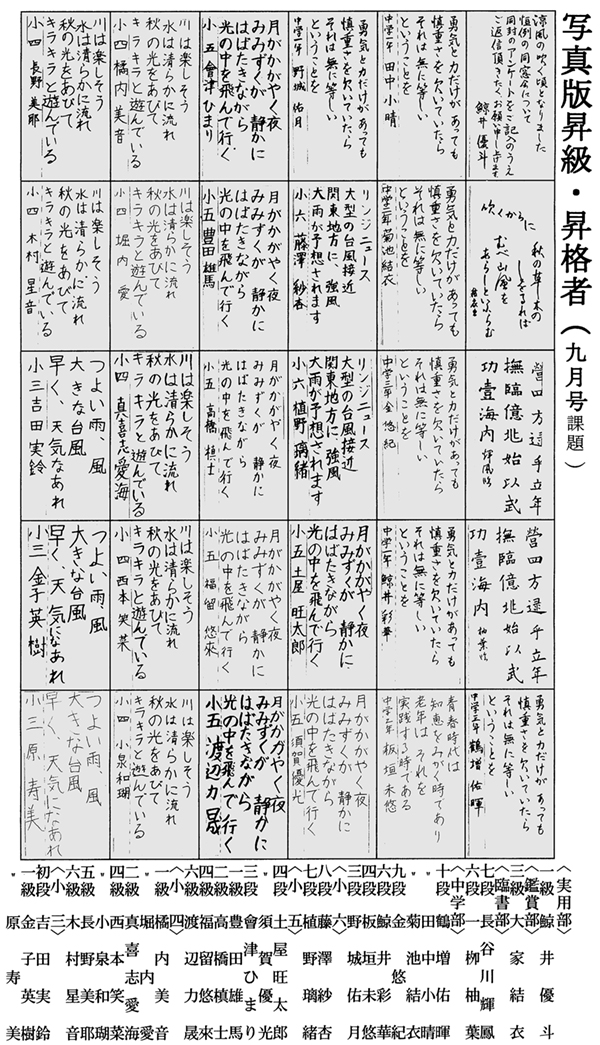 写真版昇級・昇格者（九月号課題）
涼風の吹く頃となりました
恒例の同窓会について
同封のアンケートをご記入のうえ
ご返信頂きたくお願い申し上げます
鯨井優斗
吹くからに
秋の草木の
しをるれば
むべ山風を
あらしといふらむ
結衣書
營四方遠乎立年
撫臨億兆始以武
功壹海内 輝鳳臨
營四方遠乎立年
撫臨億兆始以武
功壹海内 柚葉臨
勇気と力だけがあっても
慎重さを欠いていたら
それは無に等しい
ということを
中学三年 鶴増佑暉
勇気と力だけがあっても
慎重さを欠いていたら
それは無に等しい
ということを
中学一年 田中小晴
勇気と力だけがあっても
慎重さを欠いていたら
それは無に等しい
ということを
中学三年 菊池結衣
勇気と力だけがあっても
慎重さを欠いていたら
それは無に等しい
ということを
中学三年 金悠紀
勇気と力だけがあっても
慎重さを欠いていたら
それは無に等しい
ということを
中学一年 鯨井彩華
青春時代は
知恵をみがく時であり
老年は それを
実践する時である
中学二年 板垣未悠
勇気と力だけがあっても
慎重さを欠いていたら
それは無に等しい
ということを
中学一年 野城佑月
リンジニュース
大型の台風接近
関東地方に、強風
大雨が予想されます
小六 藤澤紗杏
リンジニュース
大型の台風接近
関東地方に強風
大雨が予想されます
小六 植野璃緒
月がかがやく夜
みみずくが 静かに
はばたきながら
光の中を飛んで行く
小五 土屋旺太郎
月がかがやく夜
みみずくが 静かに
はばたきながら
光の中を飛んで行く
小五 須賀優光
月がかがやく夜
みみずくが 静かに
はばたきながら
光の中を飛んで行く
小五 會津ひまり
月がかがやく夜
みみずくが 静かに
はばたきながら
光の中を飛んで行く
小五 豊田雄馬
月がかがやく夜
みみずくが 静かに
はばたきながら
光の中を飛んで行く
小五 高橋慎士
月がかがやく夜
みみずくが 静かに
はばたきながら
光の中を飛んで行く
小五 福留悠來
月がかがやく夜
みみずくが 静かに
はばたきながら
光の中を飛んで行く
小五 渡辺力晟
川は楽しそう
水は清らかに流れ
秋の光をあびて
キラキラと遊んでいる
小四 橘内美音
川は楽しそう
水は清らかに流れ
秋の光をあびて
キラキラと遊んでいる
小四 堀内愛
川は楽しそう
水は清らかに流れ
秋の光をあびて
キラキラと遊んでいる
小四 真喜志愛海
川は楽しそう
水は清らかに流れ
秋の光をあびて
キラキラと遊んでいる
小四 西本笑菜
川は楽しそう
水は清らかに流れ
秋の光をあびて
キラキラと遊んでいる
小四 小泉和瑚
川は楽しそう
水は清らかに流れ
秋の光をあびて
キラキラと遊んでいる
小四 長野美耶
川は楽しそう
水は清らかに流れ
秋の光をあびて
キラキラと遊んでいる
小四 木村星音
つよい雨、風
大きな台風
早く、天気なあれ
小三 吉田実鈴
つよい雨、風
大きな台風
早く、天気になあれ
小三 金子英樹
つよい雨、風
大きな台風
早く、天気になあれ
小三 原寿美
〈実用部〉
一級 鯨井優斗
〈鑑賞部〉
三級 大家結衣
〈臨書部〉
七段 長谷川輝鳳
六段 栁柚葉
〈中学部〉
十段 鶴増佑暉
〃 田中小晴
〃 菊池結衣
九段 金悠紀
六段 鯨井彩華
四段 板垣未悠
三段 野城佑月
〈小六〉
八段 藤澤紗杏
七段 植野璃緒
〈小五〉
四段 土屋旺太郎
〃 須賀優光
三段 會津ひまり
一級 豊田雄馬
二級 高橋慎士
四級 福留悠來
六級 渡辺力晟
〈小四〉
一級 橘内美音
〃 堀内愛
二級 真喜志愛海
四級 西本笑菜
〃 小泉和瑚
五級 長野美耶
六級 木村星音
〈小三〉
初段 吉田実鈴
一級 金子英樹
〃 原寿美